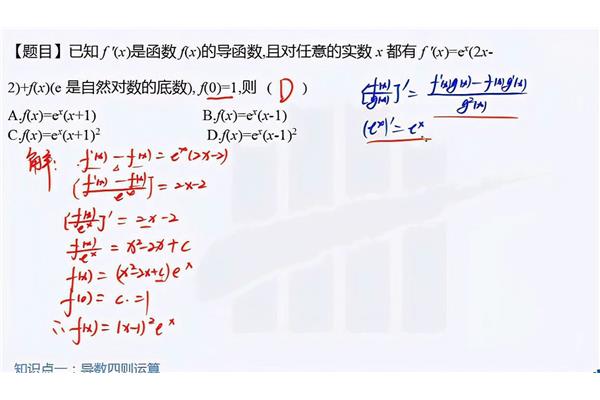 【题目】已知 f '(x)是函数 f(x)的导函数,且对任意的实数 x 都有 f '(x)=eˣ(2x-
2)+f(x)(e 是自然对数的底数), f(0)=1,则 ( D )
A.f(x)=eˣ(x+1) B.f(x)=eˣ(x-1)
C.f(x)=eˣ(x+1)² D.f(x)=eˣ(x-1)²
[f(x)/g(x)]' = f'(x)g(x)-f(x)g'(x)/g²(x)
(eˣ)'=eˣ
解: f'(x)-f(x)=eˣ(2x-2)
[f'(x)-f(x)/eˣ]=2x-2
[f(x)/eˣ]'=2x-2
f(x)/eˣ=x²-2x+c
f(x)=(x²-2x+c)eˣ
f(0)=c.=1
∴f(x)=(x-1)²eˣ
知识点一：导数四则运算